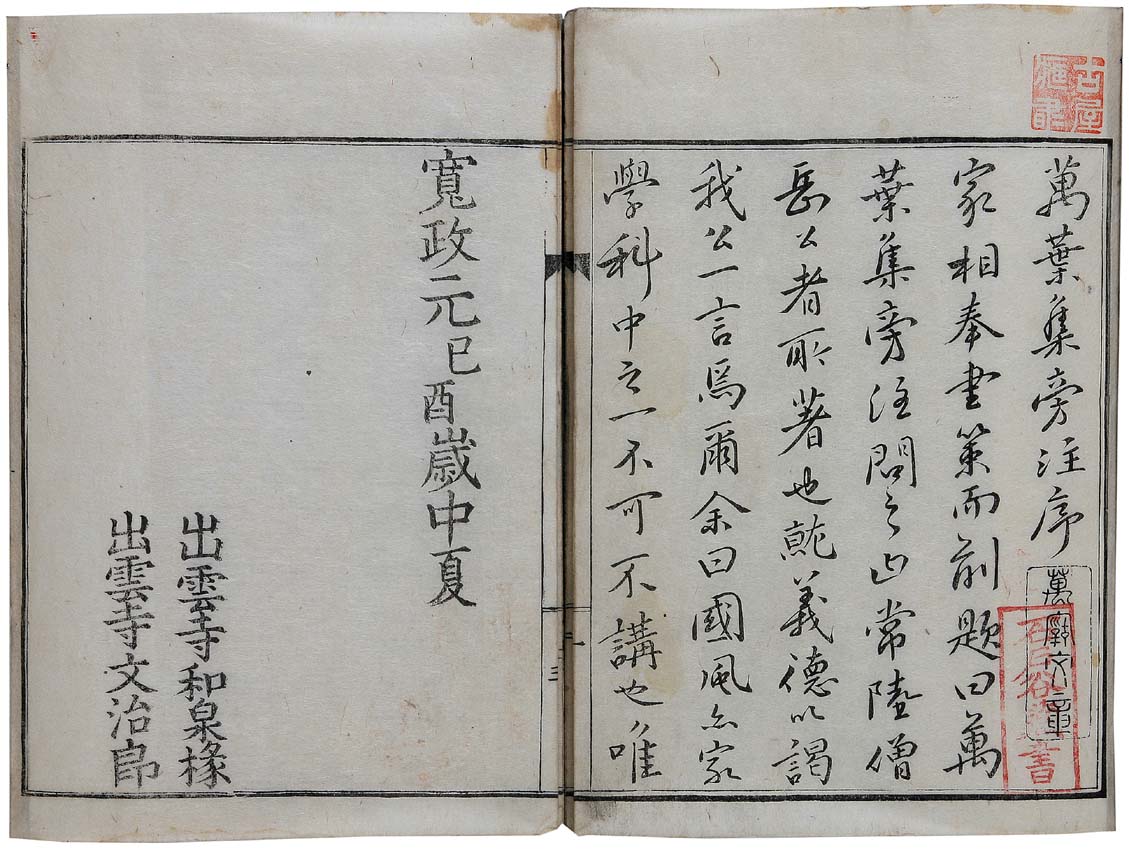 萬葉集旁注序
家相奉書策而前題曰萬
葉集旁注問之迺常陸僧
岳公者所著也就義德以謁
我公一言焉爾余曰國風亦家
學科中之一不可不講也唯
三
寬政元己酉歲中夏
出雲寺和泉掾
出雲寺文治郎